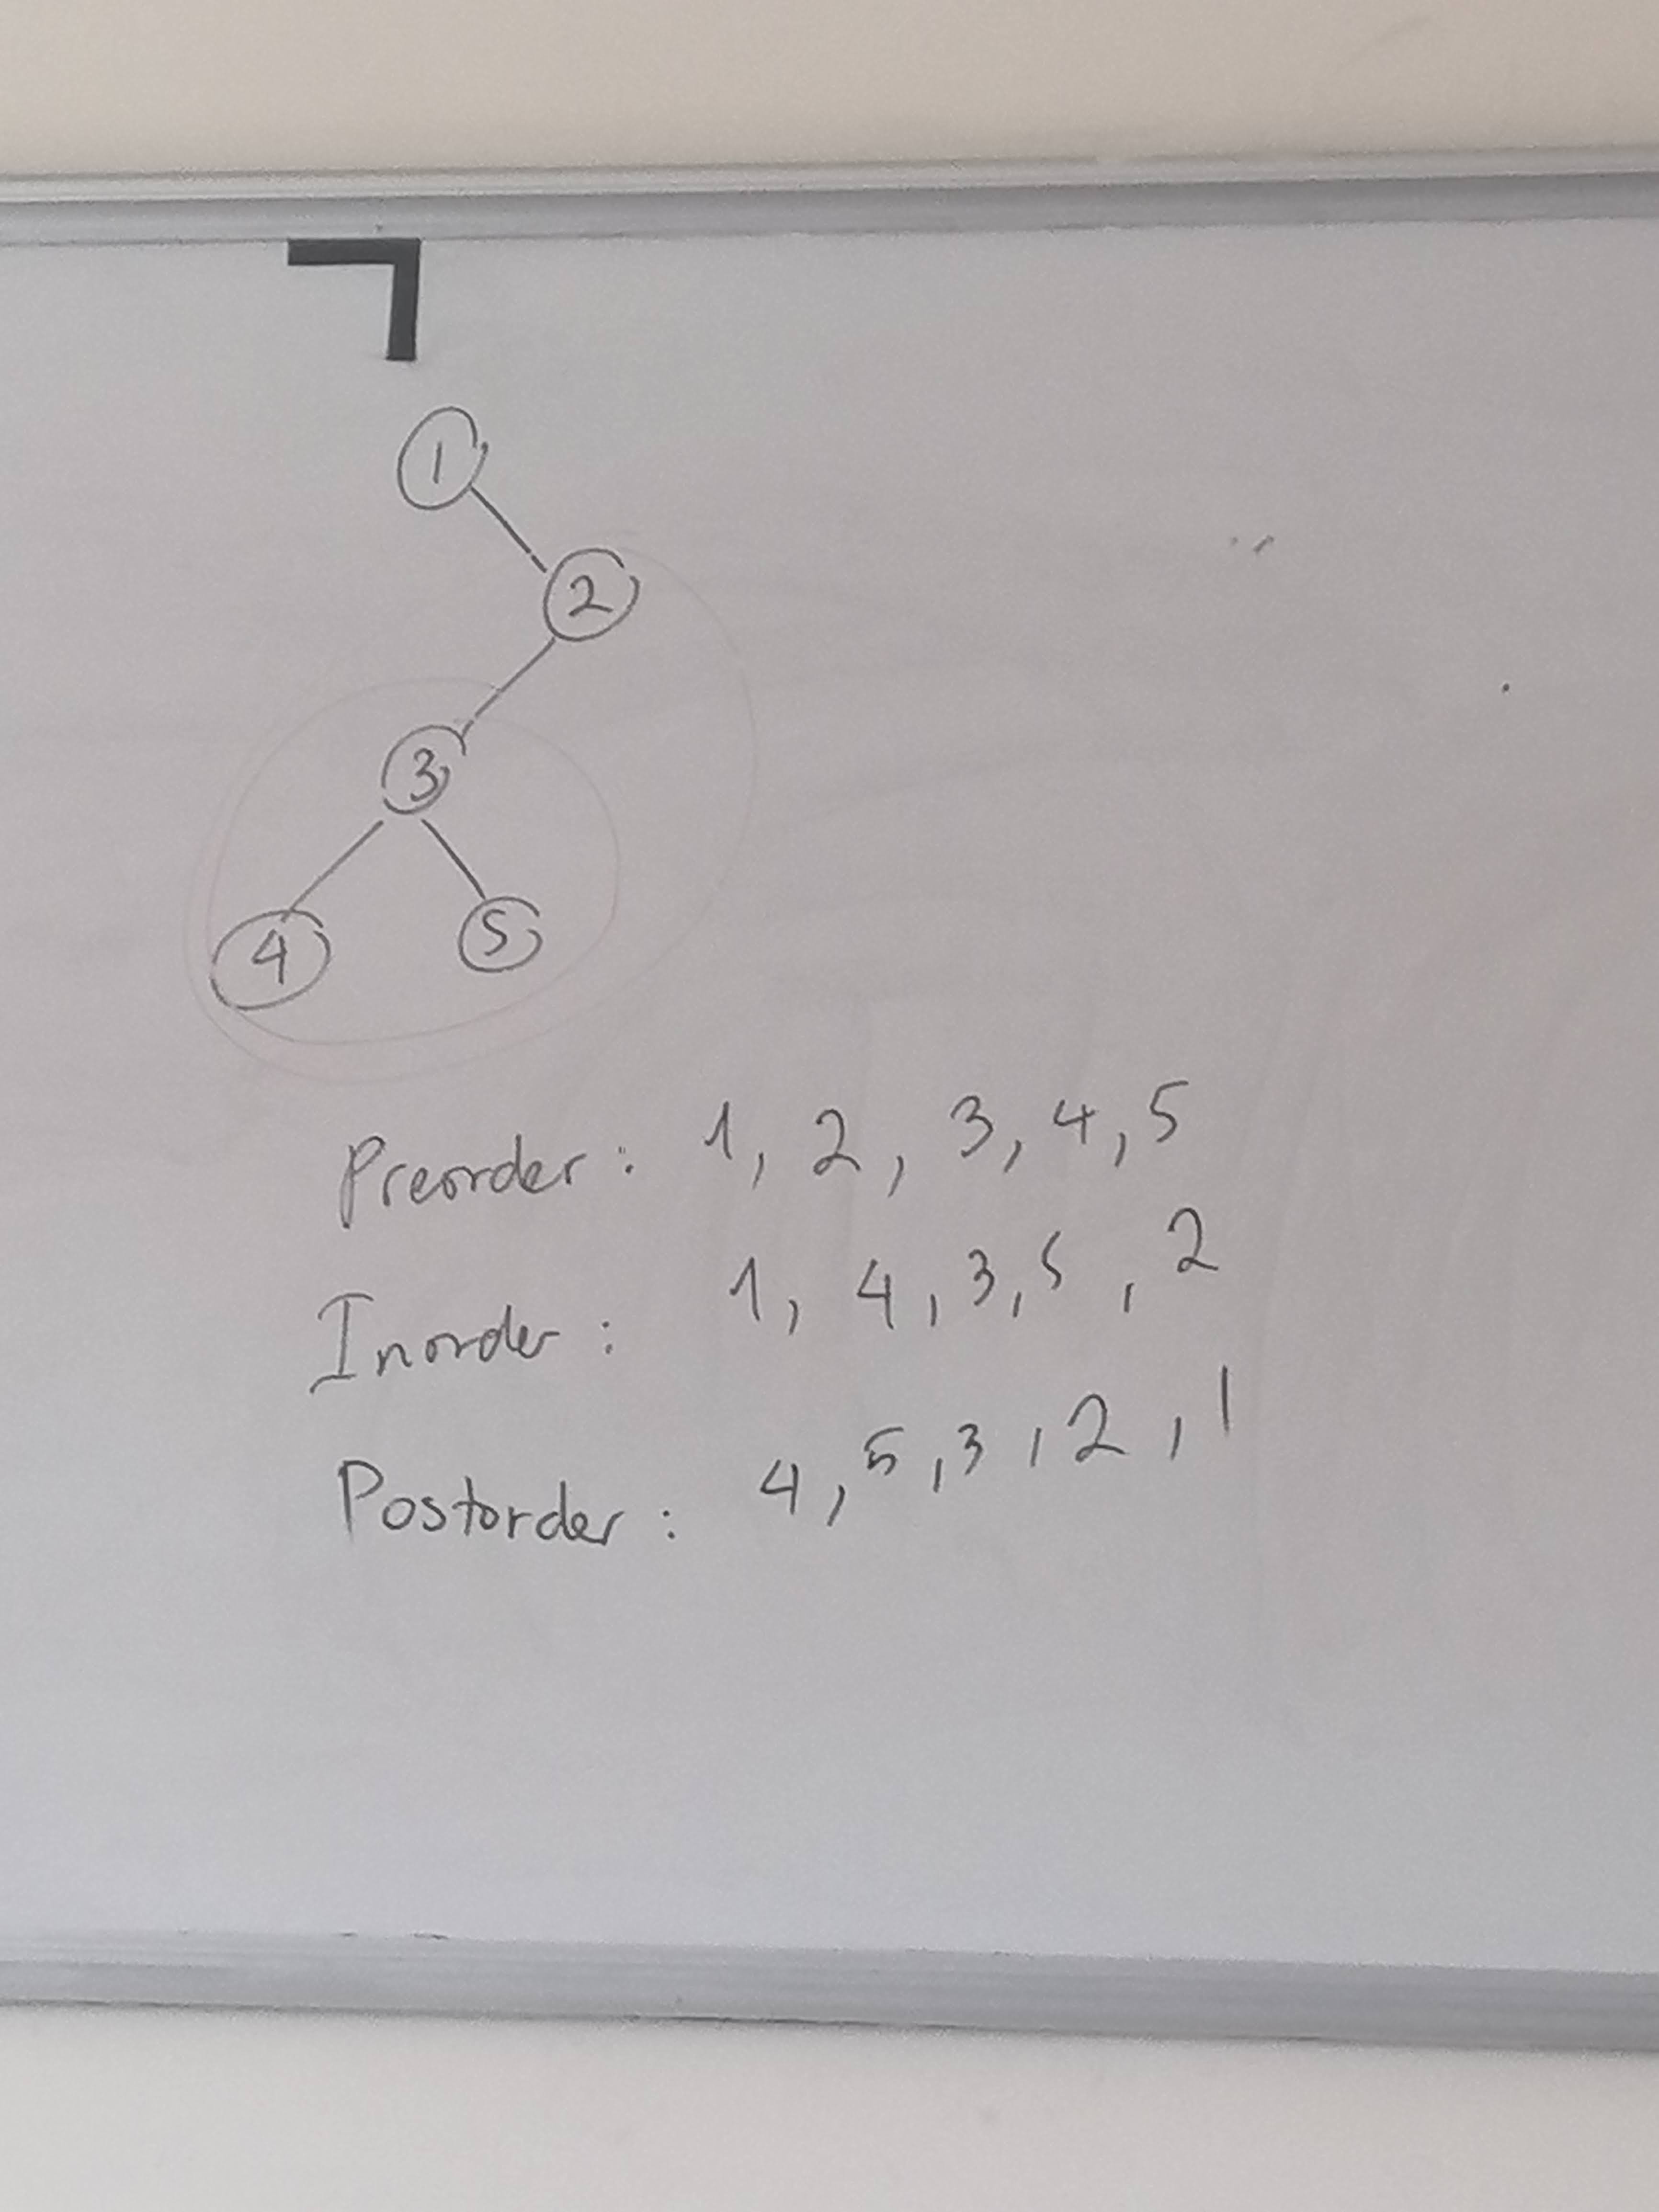 1
2
3
4 5
Preorder: 1, 2, 3, 4, 5
Inorder: 1, 4, 3, 5, 2
Postorder: 4, 5, 3, 2, 1